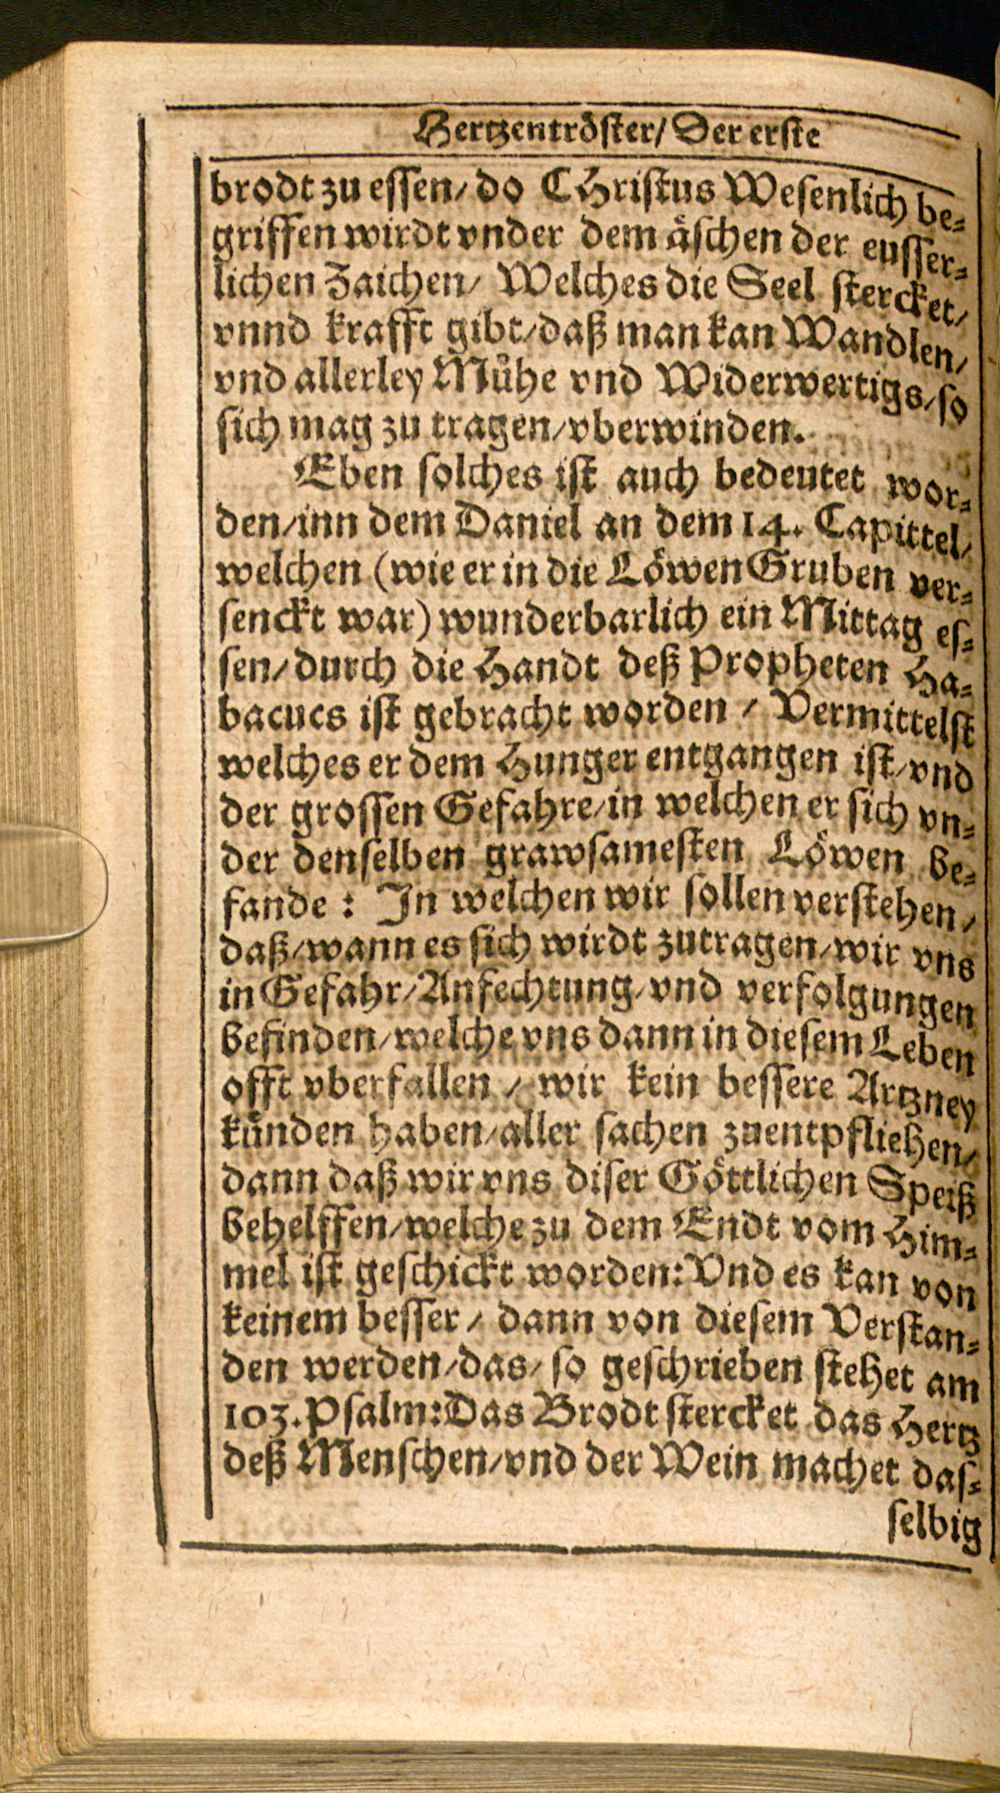 Hertzentröster/ Der erste
brodt zu essen/ do CHristus Wesenlich be-
griffen wirdt vnder dem äschen der eusser-
lichen Zaichen/ Welches die Seel stercket/
vnnd krafft gibt/ daß man kan Wandlen/
vnd allerley Mühe vnd Widerwertigs/ so
sich mag zu tragen/ vberwinden.
Eben solches ist auch bedeutet wor-
den/ inn dem Daniel an dem 14. Capittel/
welchen (wie er in die Löwen Gruben ver-
senckt war) wunderbarlich ein Mittag es-
sen/ durch die Handt deß Propheten Ha-
bacucs ist gebracht worden / Vermittelst
welches er dem Hunger entgangen ist/ vnd
der grossen Gefahre/ in welchen er sich vn-
der denselben grawsamesten Löwen be-
fande : In welchen wir sollen verstehen/
daß/ wann es sich wirdt zutragen/ wir vns
in Gefahr/ Anfechtung/ vnd verfolgungen
befinden/ welche vns dann in diesem Leben
offt vberfallen / wir kein bessere Artzney
künden haben/ aller sachen zuentpfliehen/
dann daß wir vns diser Göttlichen Speiß
behelffen/ welche zu dem Endt vom Him-
mel ist geschickt worden: Vnd es kan von
keinem besser / dann von diesem Verstan-
den werden/ das/ so geschrieben stehet am
103. Psalm: Das Brodt stercket das Hertz
deß Menschen/ vnd der Wein machet das-
selbig